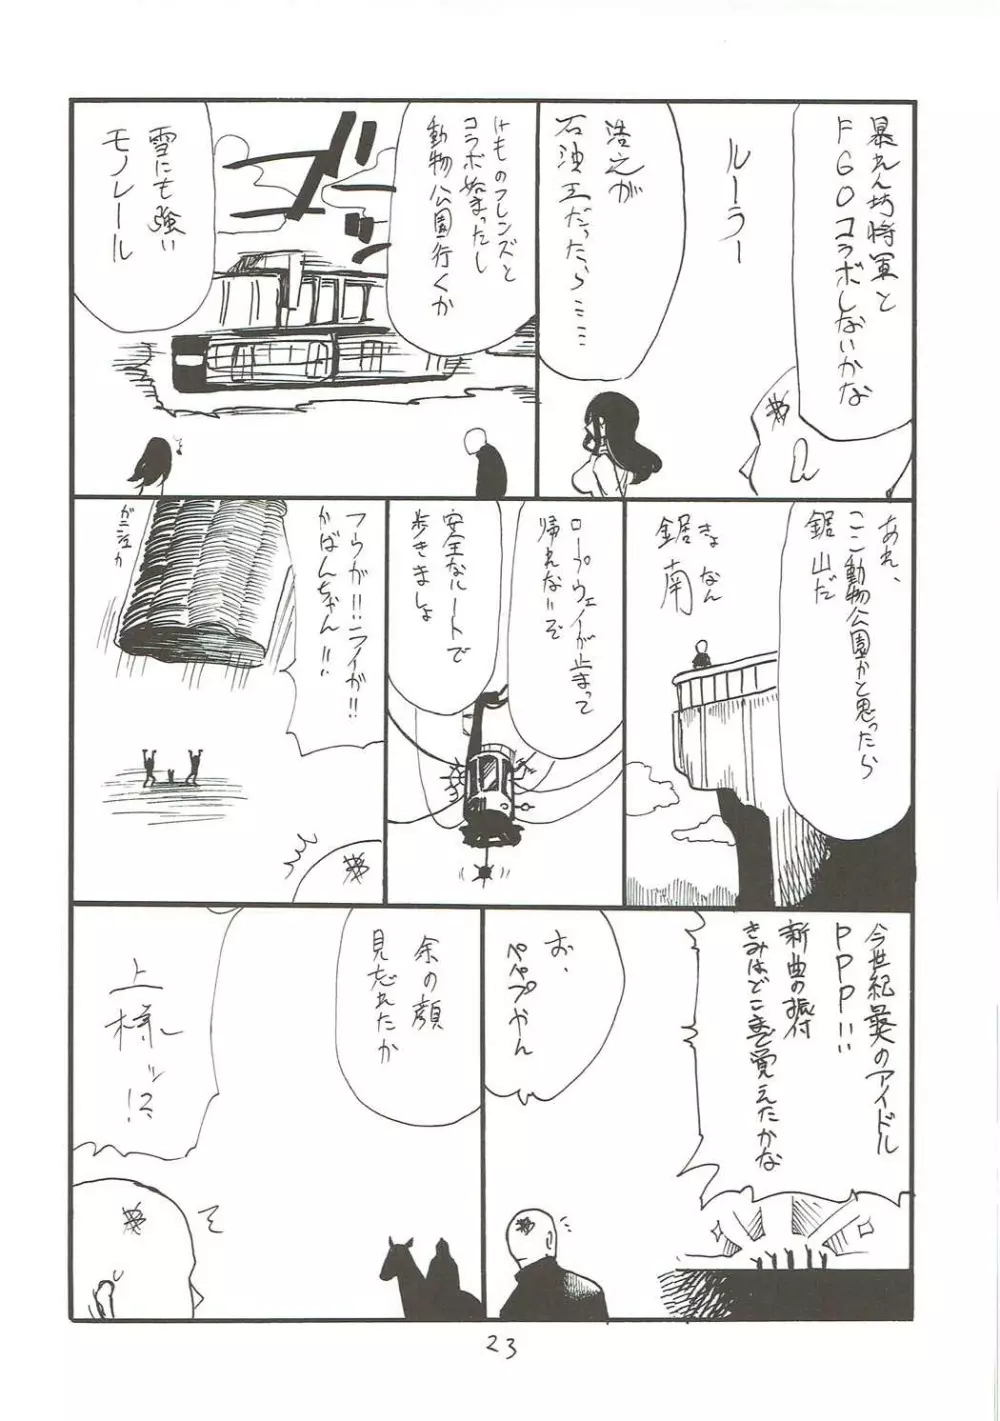 暴れん坊将軍と
FGOコラボしないかな
ルーラー
浩之が
石油王だったら……
けものフレンズと
コラボ始まったし
動物公園行くか
雪にも強い
モノレール
あれ、
ここ動物公園かと思ったら
鋸山だ
きょなん
鋸南
ロープウェイが止まって
帰れないぞ
安全なルートで
歩きましょ
フウが!!ライが!!
かばんちゃん!!
ガニュカ
今世紀最のアイドル
PPP!!
新曲の振付
きみはどこまで覚えたかな
お、
ペペプやん
余の顔
見忘れたか
上様ッ!?
23